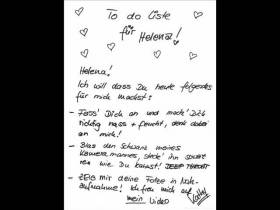 To do Liste
für Helena!
Helena!
Ich will dass Du heute folgendes
für mich machst:
- Fass' Dich an und mach' Dich
richtig nass + feucht, denk dabei
an mich!
- Blas den Schwanz meines
Kameramannes, steck' ihn so weit
rein wie Du kannst!
- Zeig mir deine Fotze in Nah-
aufnahme! Ich freu mich auf
mein Video